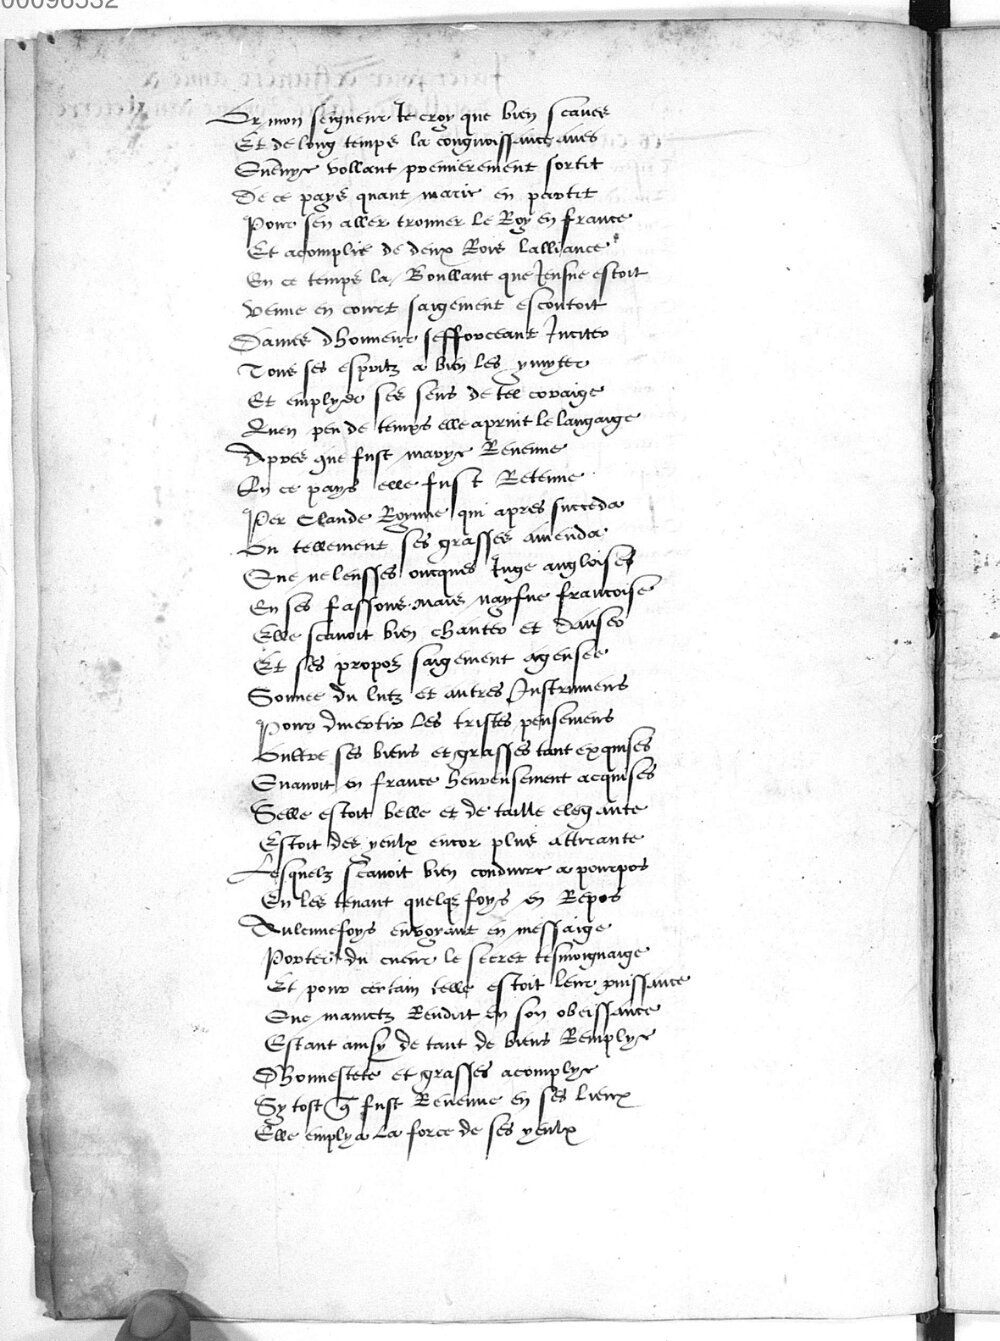 00096532
Or mon seigneur Je croy que bien scaues
Et de long temps la congnoissance aues
Quennye vollant premierement sortit
De ce pays quant marie en partit
Pour sen aller trouuer le Roy en france
Et acomplir de deux Rois lalliance
En ce temps la Boullant que Jeusne estoit
Venue en court saigement escoutoit
Dames dhonneur sefforceant Jnciter
Tous ses espritz a bien les ymyter
Et emplyer ses sens de tel coraige
Quen peu de temps elle aprint le langaige
Apres que fust marye Reuenue
En ce pays elle fust Retenue
Per Claude Royne qui apres succeda
Ou tellement ses grasses amenda
Que ne leusses oncques Juge angloises
En ses fassons mais nayfue francoise
Elle scauoit bien chanter et danser
Et ses propoz saigement agenser
Sonner du lutz et autres Jnstrumens
Pour diuertir les tristes pensemens
Oultre ses biens et grasses tant exquises
Quauoit en france heureusement acquises
Selle estoit belle et de taille elegante
Estoit des yeulx encor plus attirante
Lesquelz scauoit bien conduire a pourpos
En les tenant quelqs foys en Repos
Aulcunefoys enuoyant en messaige
Porter du cueur le secret tesmoignaige
Et pour certain telle estoit leur puissance
Que maintz Renduit en son obeissance
Estant ainsy de tant de biens Remplye
Dhonnestete et grasses acomplye
Sy tost q fust Reuenue en ses lieux
Elle emplya la force de ses yeulx